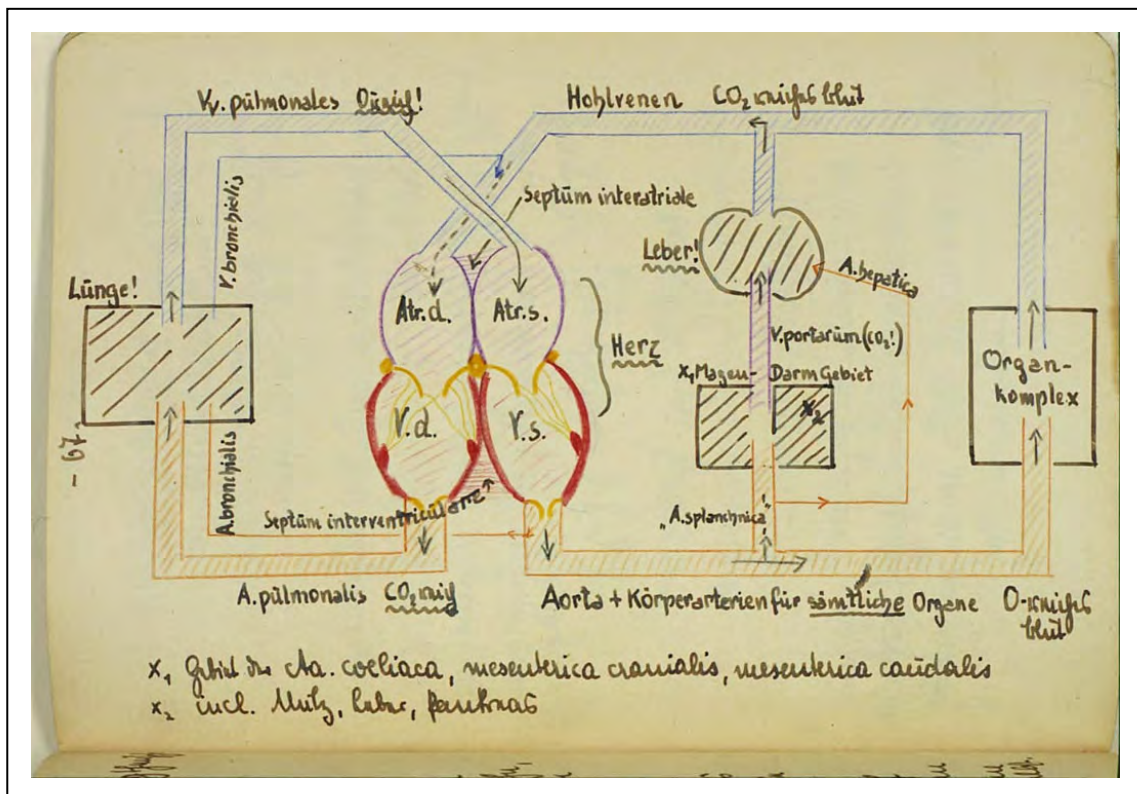 Vv. pulmonales O2reich!
Hohlvenen CO2reiches blut
V. bronchialis
Septum interatriale
Leber!
A. hepatica
Lunge!
Atr. d.
Atr. s.
Herz
V. portarum (CO2!)
x1 Magen-Darm Gebiet
x2
Organ-
komplex
V. d.
V. s.
- 67
A. bronchialis
Septum interventriculare
„A. splanchnica“
A. pulmonalis CO2reich
Aorta + Körperarterien für sämtliche Organe
O-reiches
blut
x1 Gebiet der Aa. coeliaca, mesenterica cranialis, mesenterica caudalis
x2 incl. Milz, Leber, Pankreas